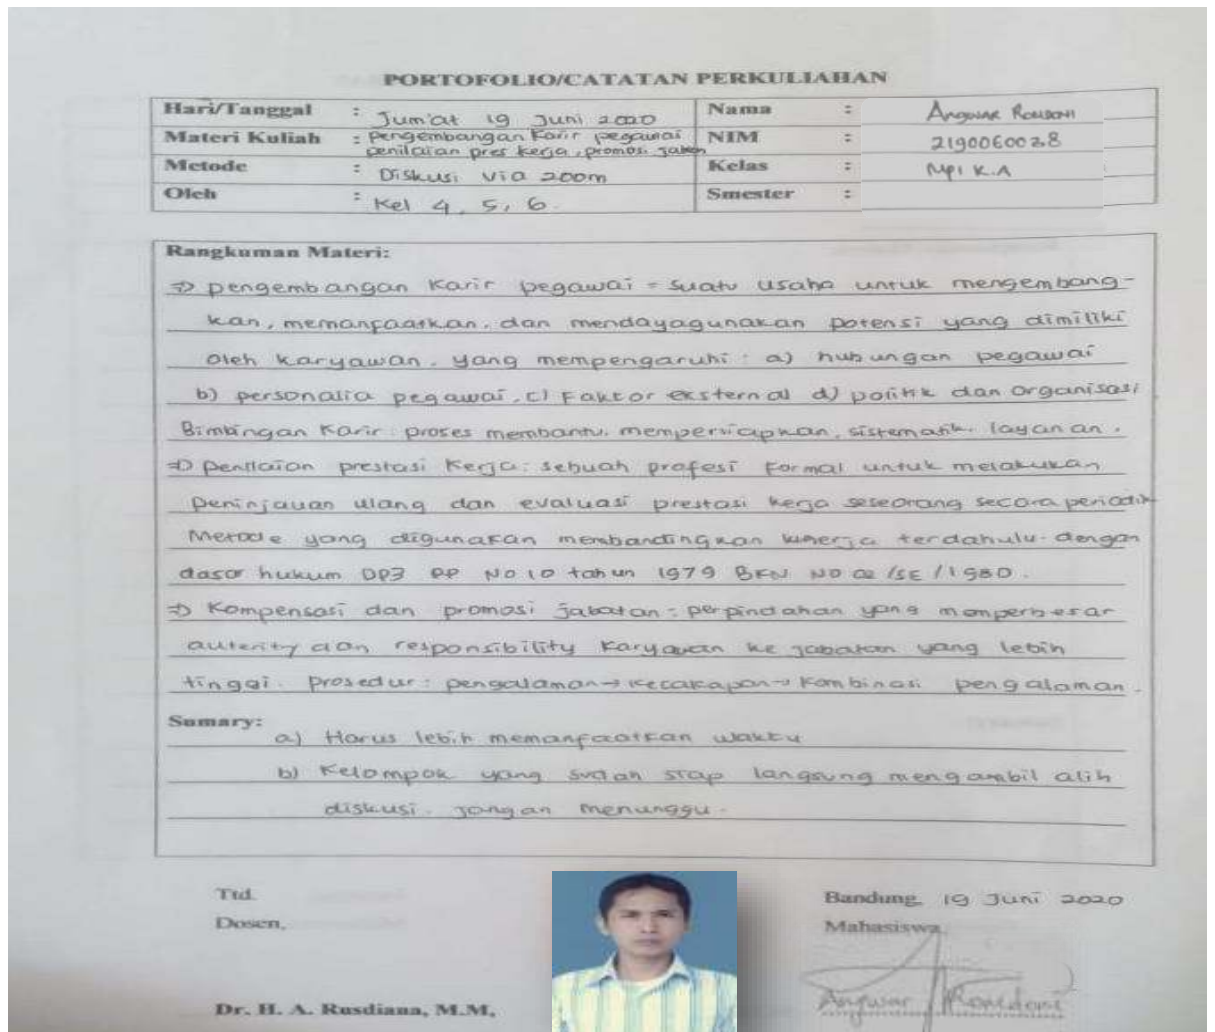 PORTOFOLIO/CATATAN PERKULIAHAN
Hari/Tanggal : Jum'at 19 Juni 2020 Nama :
Materi Kuliah : Pengembangan Karir pegawai NIM : 2190060028
penilaian pres kerja, promosi
Metode : Diskusi Via zoom Kelas : MPI K.A
Oleh : Kel 4, 5, 6. Smester :
Rangkuman Materi:
=> pengembangan Karir pegawai = suatu usaha untuk mengembang-
kan, memanfaatkan, dan mendayagunakan potensi yang dimiliki
oleh karyawan. yang mempengaruhi : a) hubungan pegawai
b) personalia pegawai, c) Faktor eksternal d) politik dan organisasi
Bimbingan Karir : proses membantu, mempersiapkan, sistematik. layanan.
=> penilaian prestasi Kerja : sebuah profesi Formal untuk melakukan
peninjauan ulang dan evaluasi prestasi kerja seseorang secara periodik
Metode yang digunakan membandingkan kinerja terdahulu. dengan
dasar hukum DP3 PP No 10 tahun 1979 BKN NO 02 /SE /1980.
=> Kompensasi dan promosi jabatan : perpindahan yang memperbesar
auterity dan responsibility Karyawan ke jabatan yang lebih
tinggi. prosedur : pengalaman → kecakapan → Kombinasi pengalaman.
Sumary:
a) Harus lebih memanfaatkan waktu
b) Kelompok yang sudah siap langsung mengambil alih
diskusi. jangan menunggu.
Ttd. Bandung, 19 Juni 2020
Dosen, Mahasiswa,
Dr. H. A. Rusdiana, M.M,